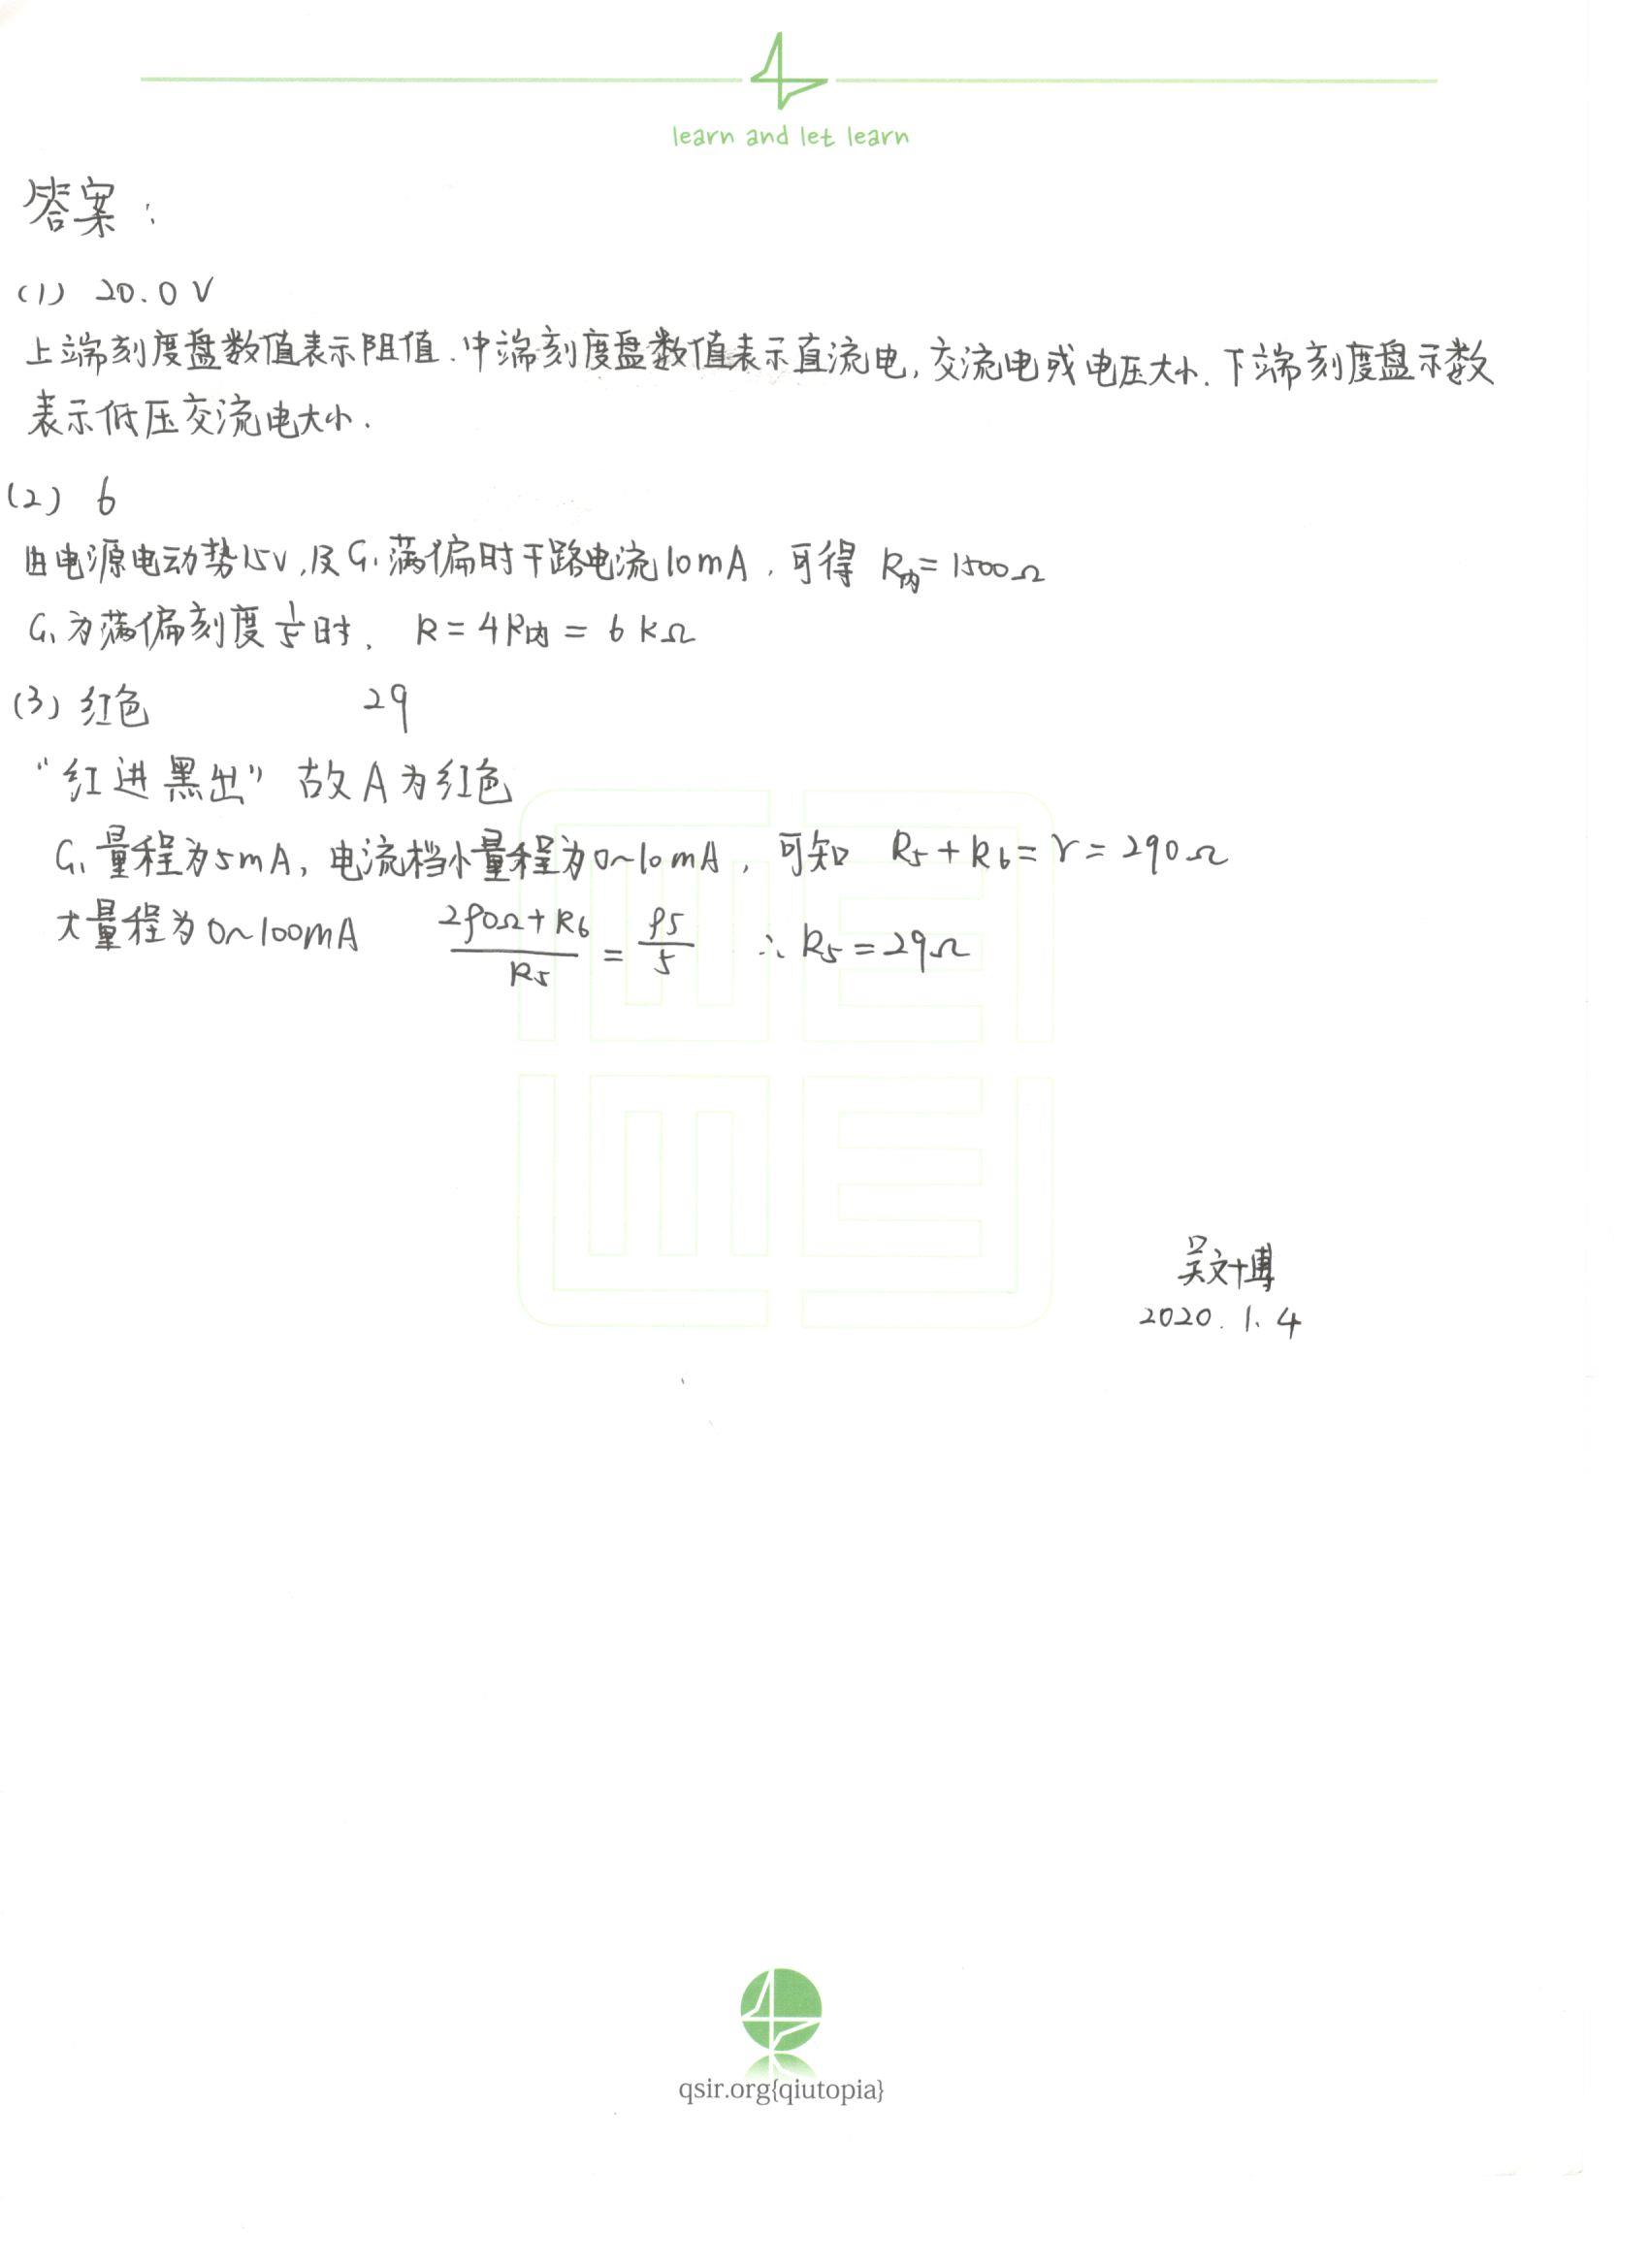 learn and let learn
答案：
(1) 20.0 V
上端刻度盘数值表示阻值.中端刻度盘数值表示直流电,交流电或电压大小.下端刻度盘示数
表示低压交流电大小.
(2) 6
由电源电动势15V,及G₁满偏时干路电流10mA,可得 R内=1500Ω
G₁为满偏刻度1/5时, R=4R内=6kΩ
(3) 红色 29
"红进黑出" 故A为红色
G₁量程为5mA,电流档小量程为0~10mA,可知 R5+R6=r=290Ω
大量程为0~100mA (290Ω+R6)/R5=95/5 ∴R5=29Ω
吴文博
2020.1.4
qsir.org{qiutopia}